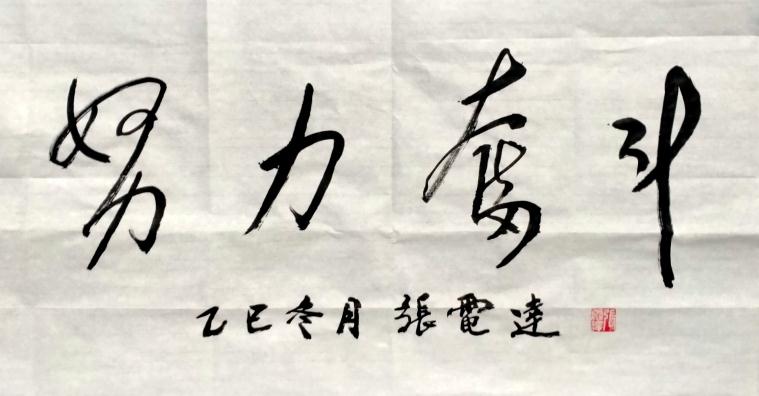 努力奮斗
乙巳冬月 張電達